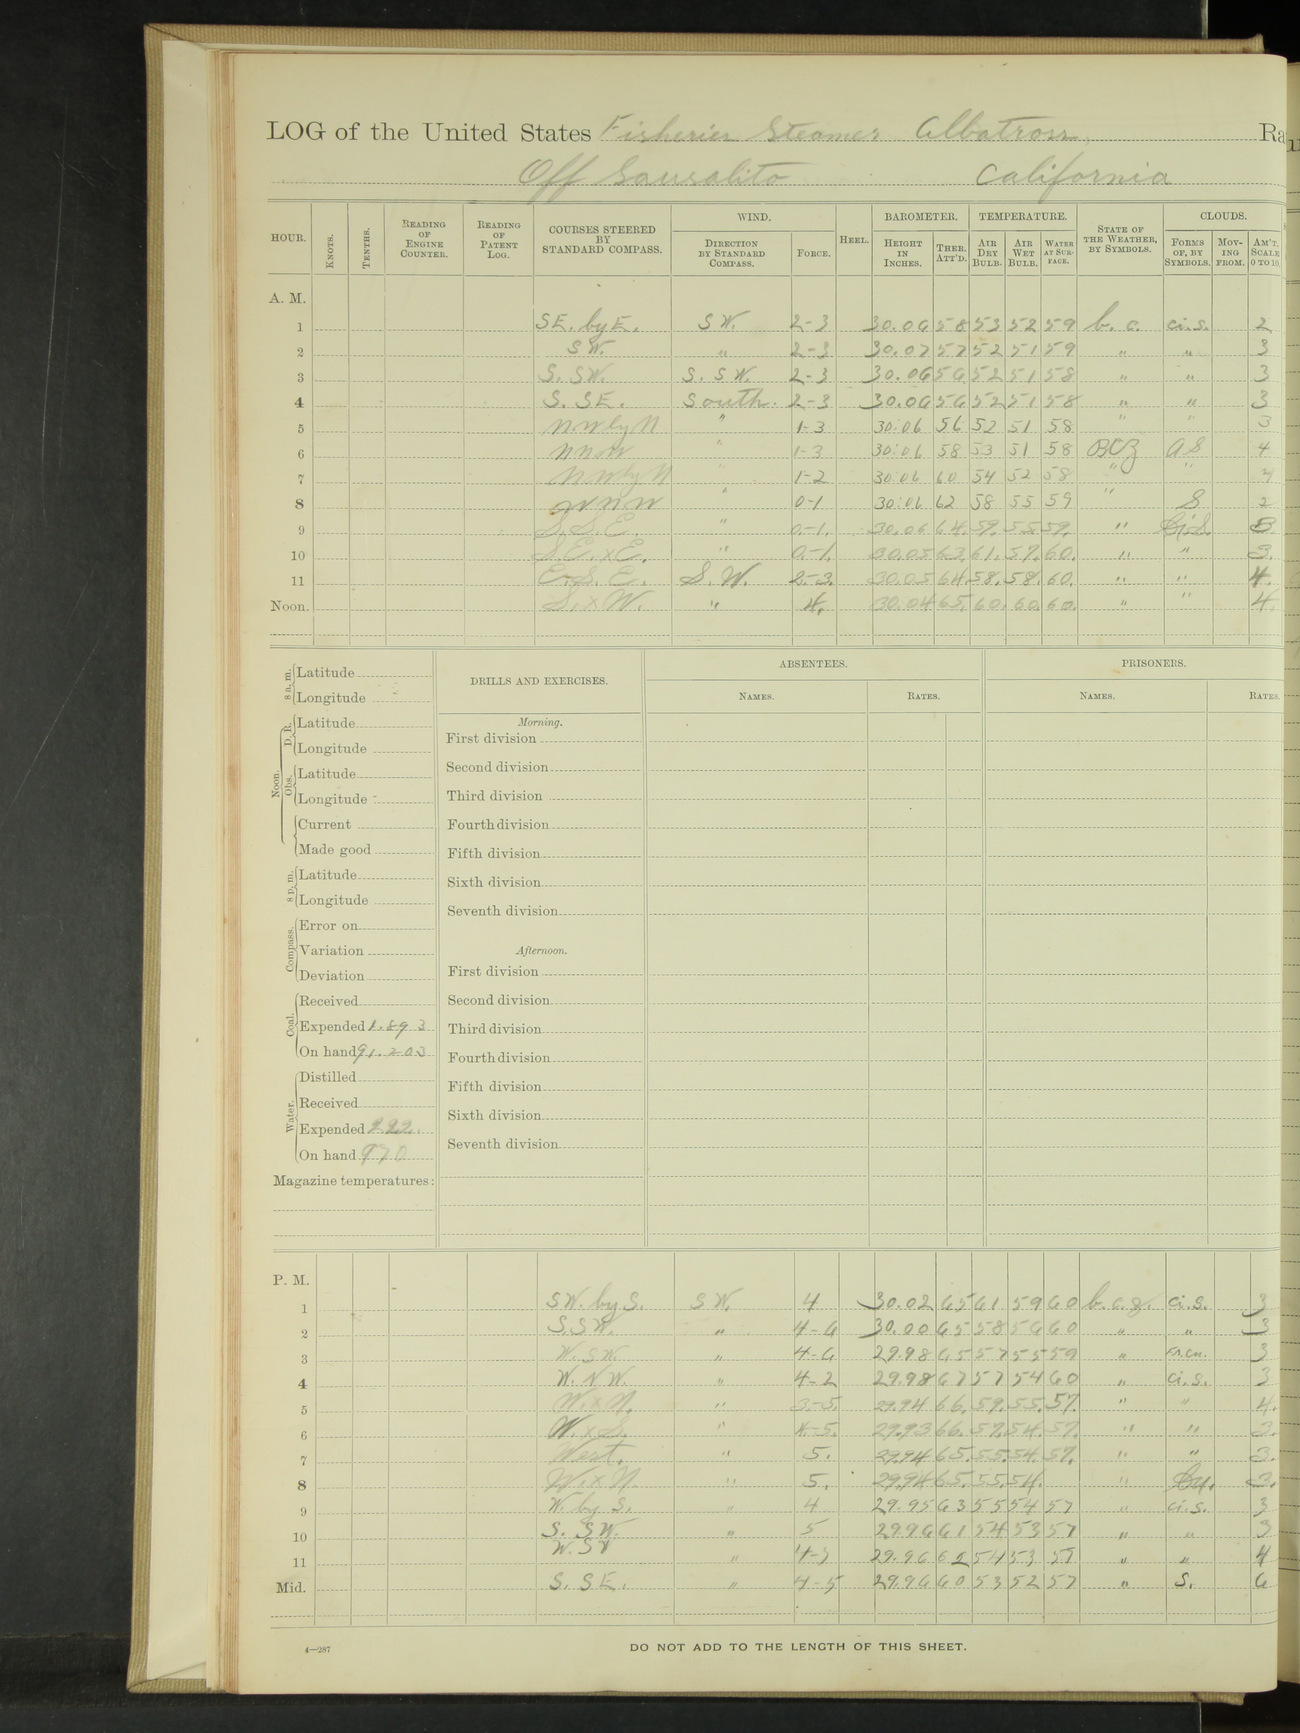 LOG of the United States Fisheries Steamer Albatross, Ra
Off Sausalito California
HOUR. KNOTS. TENTHS. READING OF ENGINE COUNTER. READING OF PATENT LOG. COURSES STEERED BY STANDARD COMPASS. WIND. DIRECTION BY STANDARD COMPASS. FORCE. HEEL. BAROMETER. HEIGHT IN INCHES. THER. ATT'D. TEMPERATURE. AIR DRY BULB. AIR WET BULB. WATER AT SURFACE. STATE OF THE WEATHER, BY SYMBOLS. CLOUDS. FORMS OF, BY SYMBOLS. MOVING FROM. AM'T. SCALE 0 TO 10.
A. M.
1 SE. by E. SW. 2-3 30.06 58 53 52 59 b. c. ci.s. 2
2 SW. " 2-3 30.07 57 52 51 59 " " 3
3 S. SW. S. SW. 2-3 30.06 56 52 51 58 " " 3
4 S. SE. South. 2-3 30.06 56 52 51 58 " " 3
5 NW by N " 1-3 30.06 56 52 51 58 " " 3
6 NNW " 1-3 30.06 58 53 51 58 BCZ AS 4
7 NW by N " 1-2 30.06 60 54 52 58 " "
8 " 0-1 30.06 62 58 55 59 " S 2
9 S.S.E. " 0-1. 30.06 64. 59. 55. 59. " Ci.S. 3
10 S.E. x E. " 0-1. 30.05 63. 61. 57. 60. " " 3.
11 E. S. E. S. W. 2-3. 30.05 64. 58. 58. 60. " " 4.
Noon. S. x W. " 4. 30.04 65. 60. 60. 60. " " 4.
8 a. m. Latitude
Longitude
Noon. D. R. Latitude
Longitude
Obs. Latitude
Longitude
Current
Made good
8 p. m. Latitude
Longitude
Compass. Error on
Variation
Deviation
Coal. Received
Expended 1.893
On hand 91.203
Water. Distilled
Received
Expended 222.
On hand 970
Magazine temperatures:
DRILLS AND EXERCISES.
Morning.
First division
Second division
Third division
Fourth division
Fifth division
Sixth division
Seventh division
Afternoon.
First division
Second division
Third division
Fourth division
Fifth division
Sixth division
Seventh division
ABSENTEES.
NAMES. RATES.
PRISONERS.
NAMES. RATES.
P. M.
1 SW. by S. SW. 4 30.02 65 61 59 60 b.c.z. ci.s. 3
2 S.SW. " 4-6 30.00 65 58 56 60 " " 3
3 W.SW. " 4-6 29.98 65 57 55 59 " Fr.cu. 3
4 W. NW. " 4-2 29.98 67 57 54 60 " ci.s. 3
5 W. x N. " 3-5. 29.94 66. 59. 55. 57. " " 4.
6 W. x S. " 4-5. 29.93 66. 57. 54. 57. " " 3.
7 West. " 5. 29.94 65. 55. 54. 57. " " 3.
8 W. x N. " 5. 29.94 65. 55. 54. " Cu. 3.
9 W. by S. " 4 29.95 63 55 54 57 " ci.s. 3
10 S. SW. " 5 29.96 61 54 53 57 " " 3
11 " 4-5 29.96 62 54 53 57 " " 4
Mid. S. SE. " 4-5 29.96 60 53 52 57 " S. 6
4—287
DO NOT ADD TO THE LENGTH OF THIS SHEET.